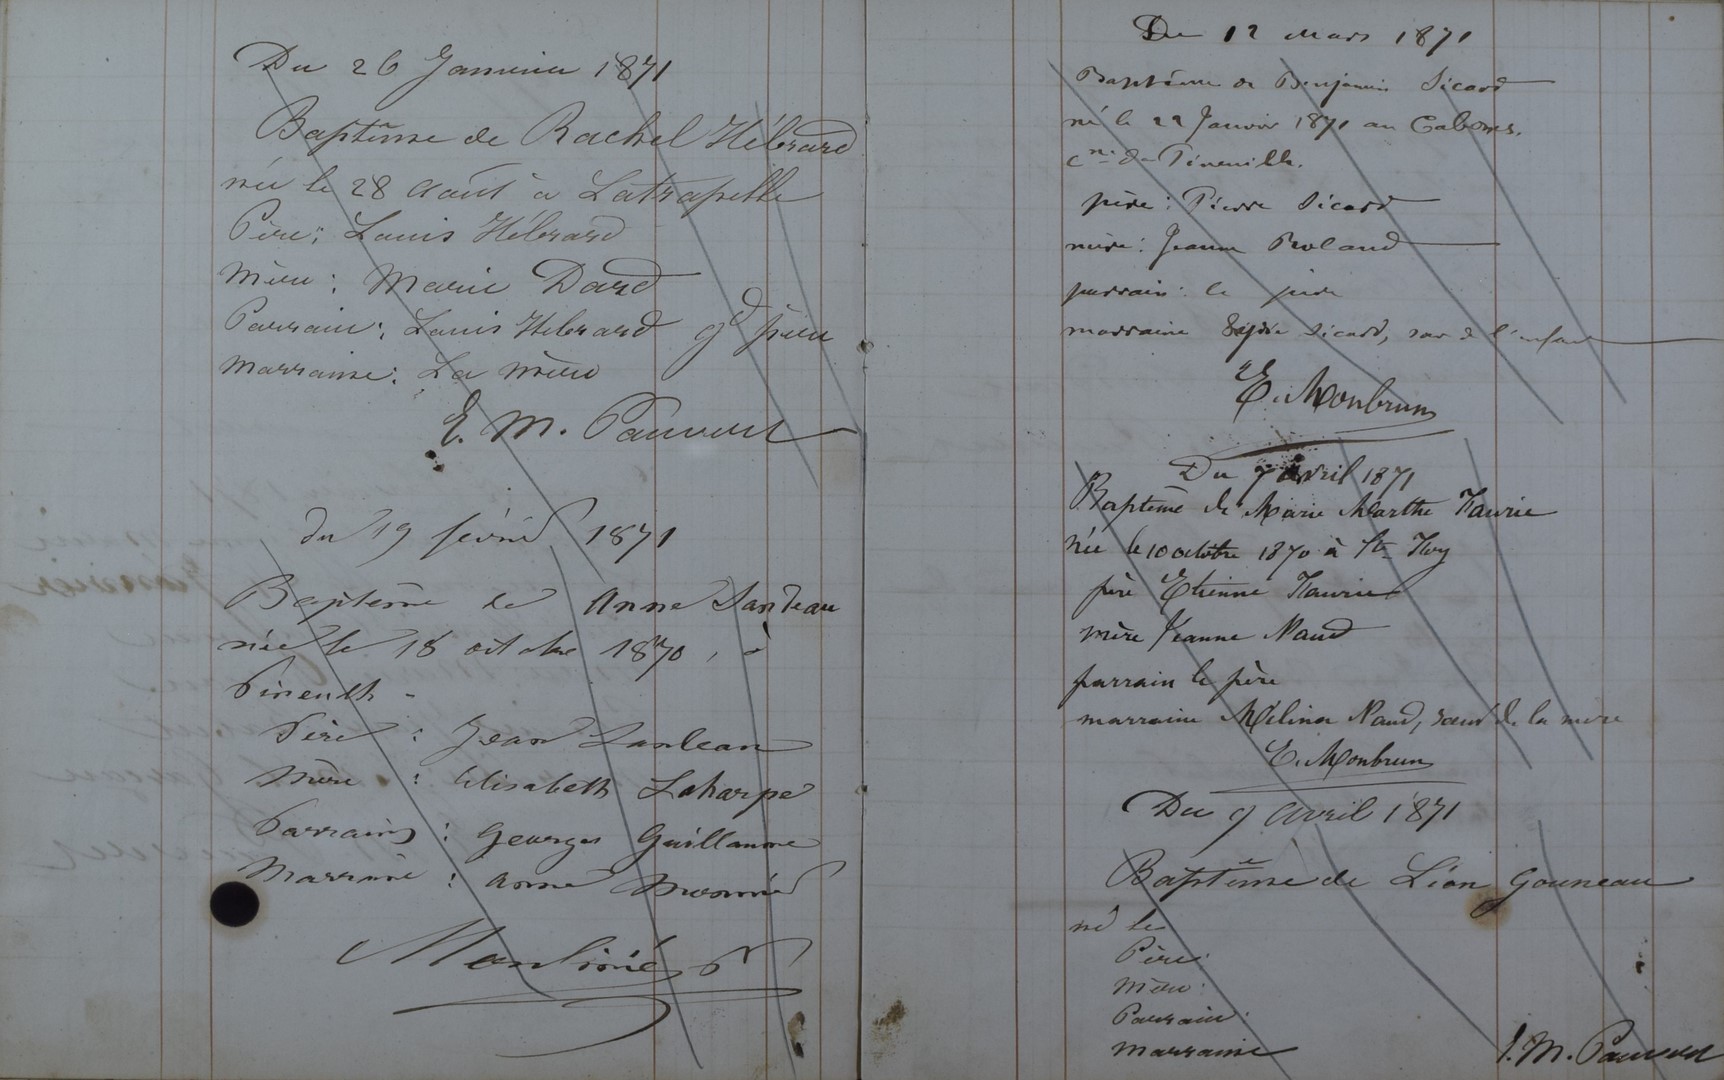 Du 26 Janvier 1871
Baptême de Rachel Hébrard
née le 28 Août à Latrapelle
Père: Louis Hébrard
Mère: Marie Dard
Parrain: Louis Hébrard gd père
Marraine: La mère
E. M. Pauvert
du 19 février 1871
Baptème de Anne Landeau
née le 18 octobre 1870, à
Pineuilh -
Père : Jean Landeau
Mère : Elisabeth Laharpe
Parrain : Georges Guillaume
Marraine : Anne
Du 12 Mars 1871
Baptême de Benjamin Sicard
né le 22 Janvier 1871 au
cne de Pineuilh.
père: Pierre Sicard
mère: Jeanne Roland
parrain: le père
marraine Sicard, sœur de l'enfant
E. Monbrun
Du 7 Avril 1871
Baptême de Marie Marthe Faurie
née le 10 octobre 1870 à Ste Foy
père Etienne Faurie
mère Jeanne Naud
parrain le père
marraine Mélina Naud, sœur de la mère
E. Monbrun
Du 9 Avril 1871
Baptême de Léon Gouneau
né le
Père:
Mère:
Parrain:
Marraine
E. M. Pauvert